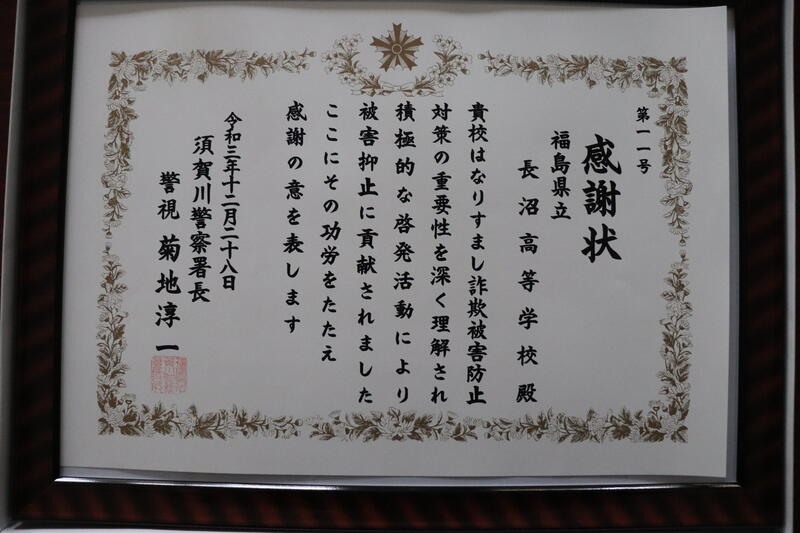 第一一号
感謝状
福島県立
長沼高等学校殿
貴校はなりすまし詐欺被害防止
対策の重要性を深く理解され
積極的な啓発活動により
被害抑止に貢献されました
ここにその功労をたたえ
感謝の意を表します
令和三年十二月二十八日
須賀川警察署長
警視 菊地淳一